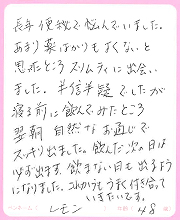 長年便秘で悩んでいました。
あまり薬ばかりもよくないと
思ったところスリムティに出会い
ました。半信半疑でしたが
寝る前に飲んでみたところ
翌朝自然なお通じで
スッキリ出ました。飲んだ次の日は
必ず出ます。飲まない日も出るよう
になりました。これからもうまく付き合って
いきたいです。
レモン 48